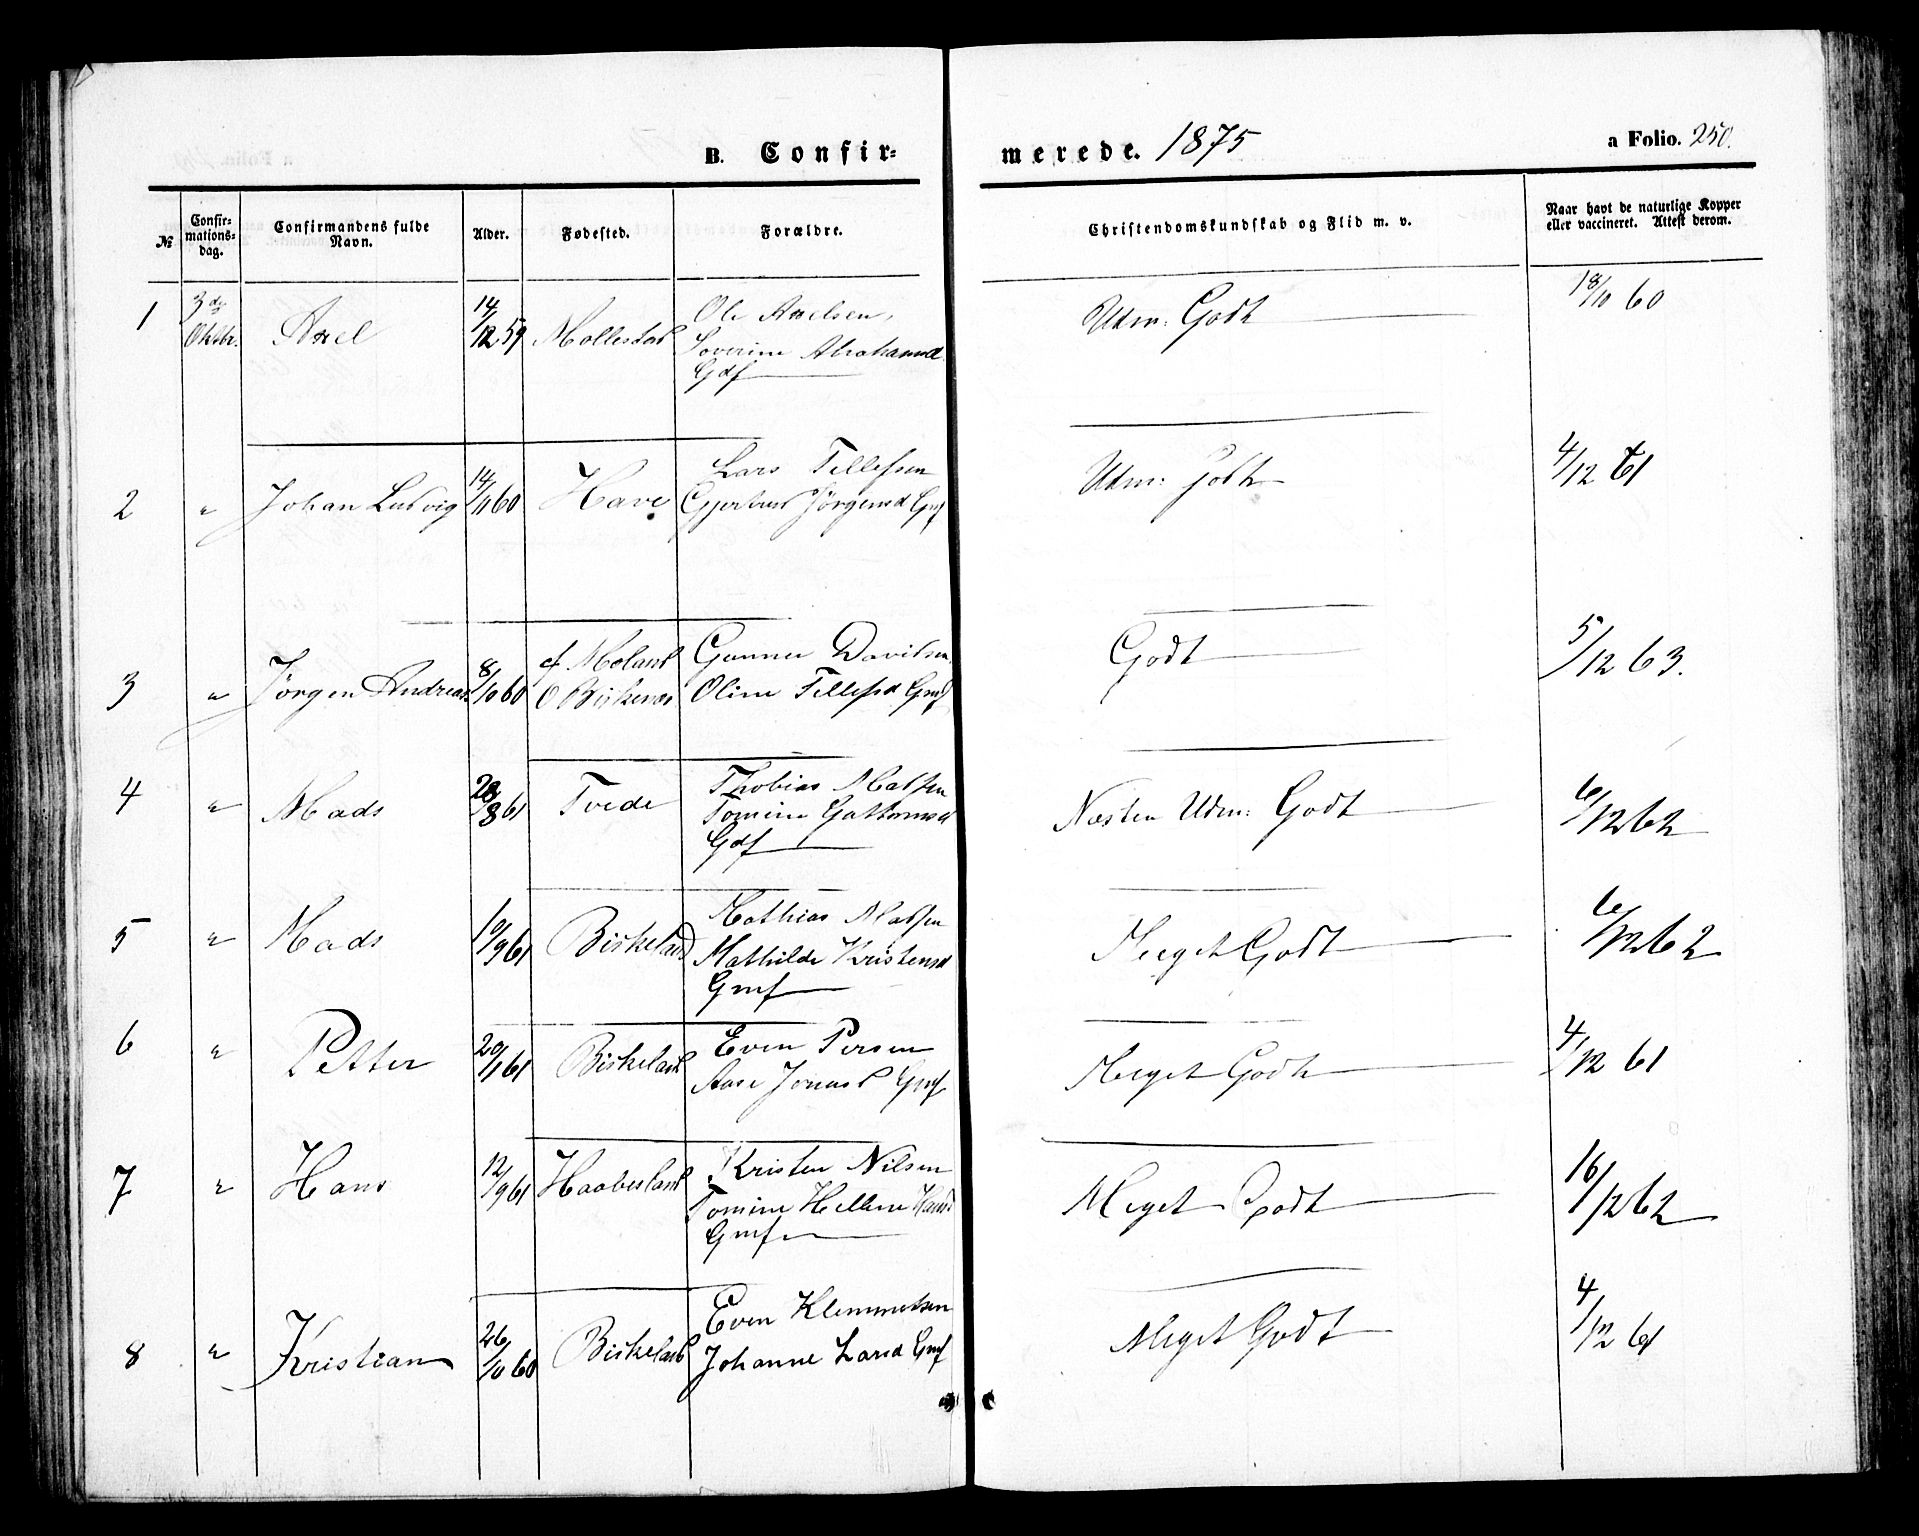 B. Confir-
merede. 1875
a Folio. 250.
№
Confir-
mations-
dag.
Confirmandens fulde
Navn.
Alder.
Fødested.
Forældre.
Christendomskundskab og Flid m. v.
Naar havt de naturlige Kopper
eller vaccineret. Attest derom.
1 3die Oktbr. Axel 14/12 59 Mollestad Ole Axelsen,
Severine Abrahamsd
Gdf
Udm: Godt 18/10 60
2 " Johan Ludvig 14/11 60 Have Lars Tellefsen
Gjertrud Jörgensd Gmf
Udm: Godt 4/12 61
3 " Jörgen Andreas 8/10 60 f Moland
O Birkenes
Gunner Davidsen
Oline Tellefsd Gmf
Godt 5/12 63.
4 " Mads 28/8 61 Tvede Thobias Madsen
Tomine Guttormsd
Gdf
Næsten Udm: Godt 6/12 62
5 " Mads 10/9 61 Birkeland Mathias Madsen
Mathilde Kristensd
Gmf
Meget Godt 6/12 62
6 " Petter 20/1 61 Birkeland Even Persen
Aase Jonasd Gmf
Meget Godt 4/12 61
7 " Hans 12/9 61 Haabesland Kristen Nilsen
Tomine Hellene Hansd
Gmf
Meget Godt 16/12 62
8 " Kristian 26/10 60 Birkeland Even Klemmetsen
Johanne Larsd Gmf
Meget Godt 4/12 61